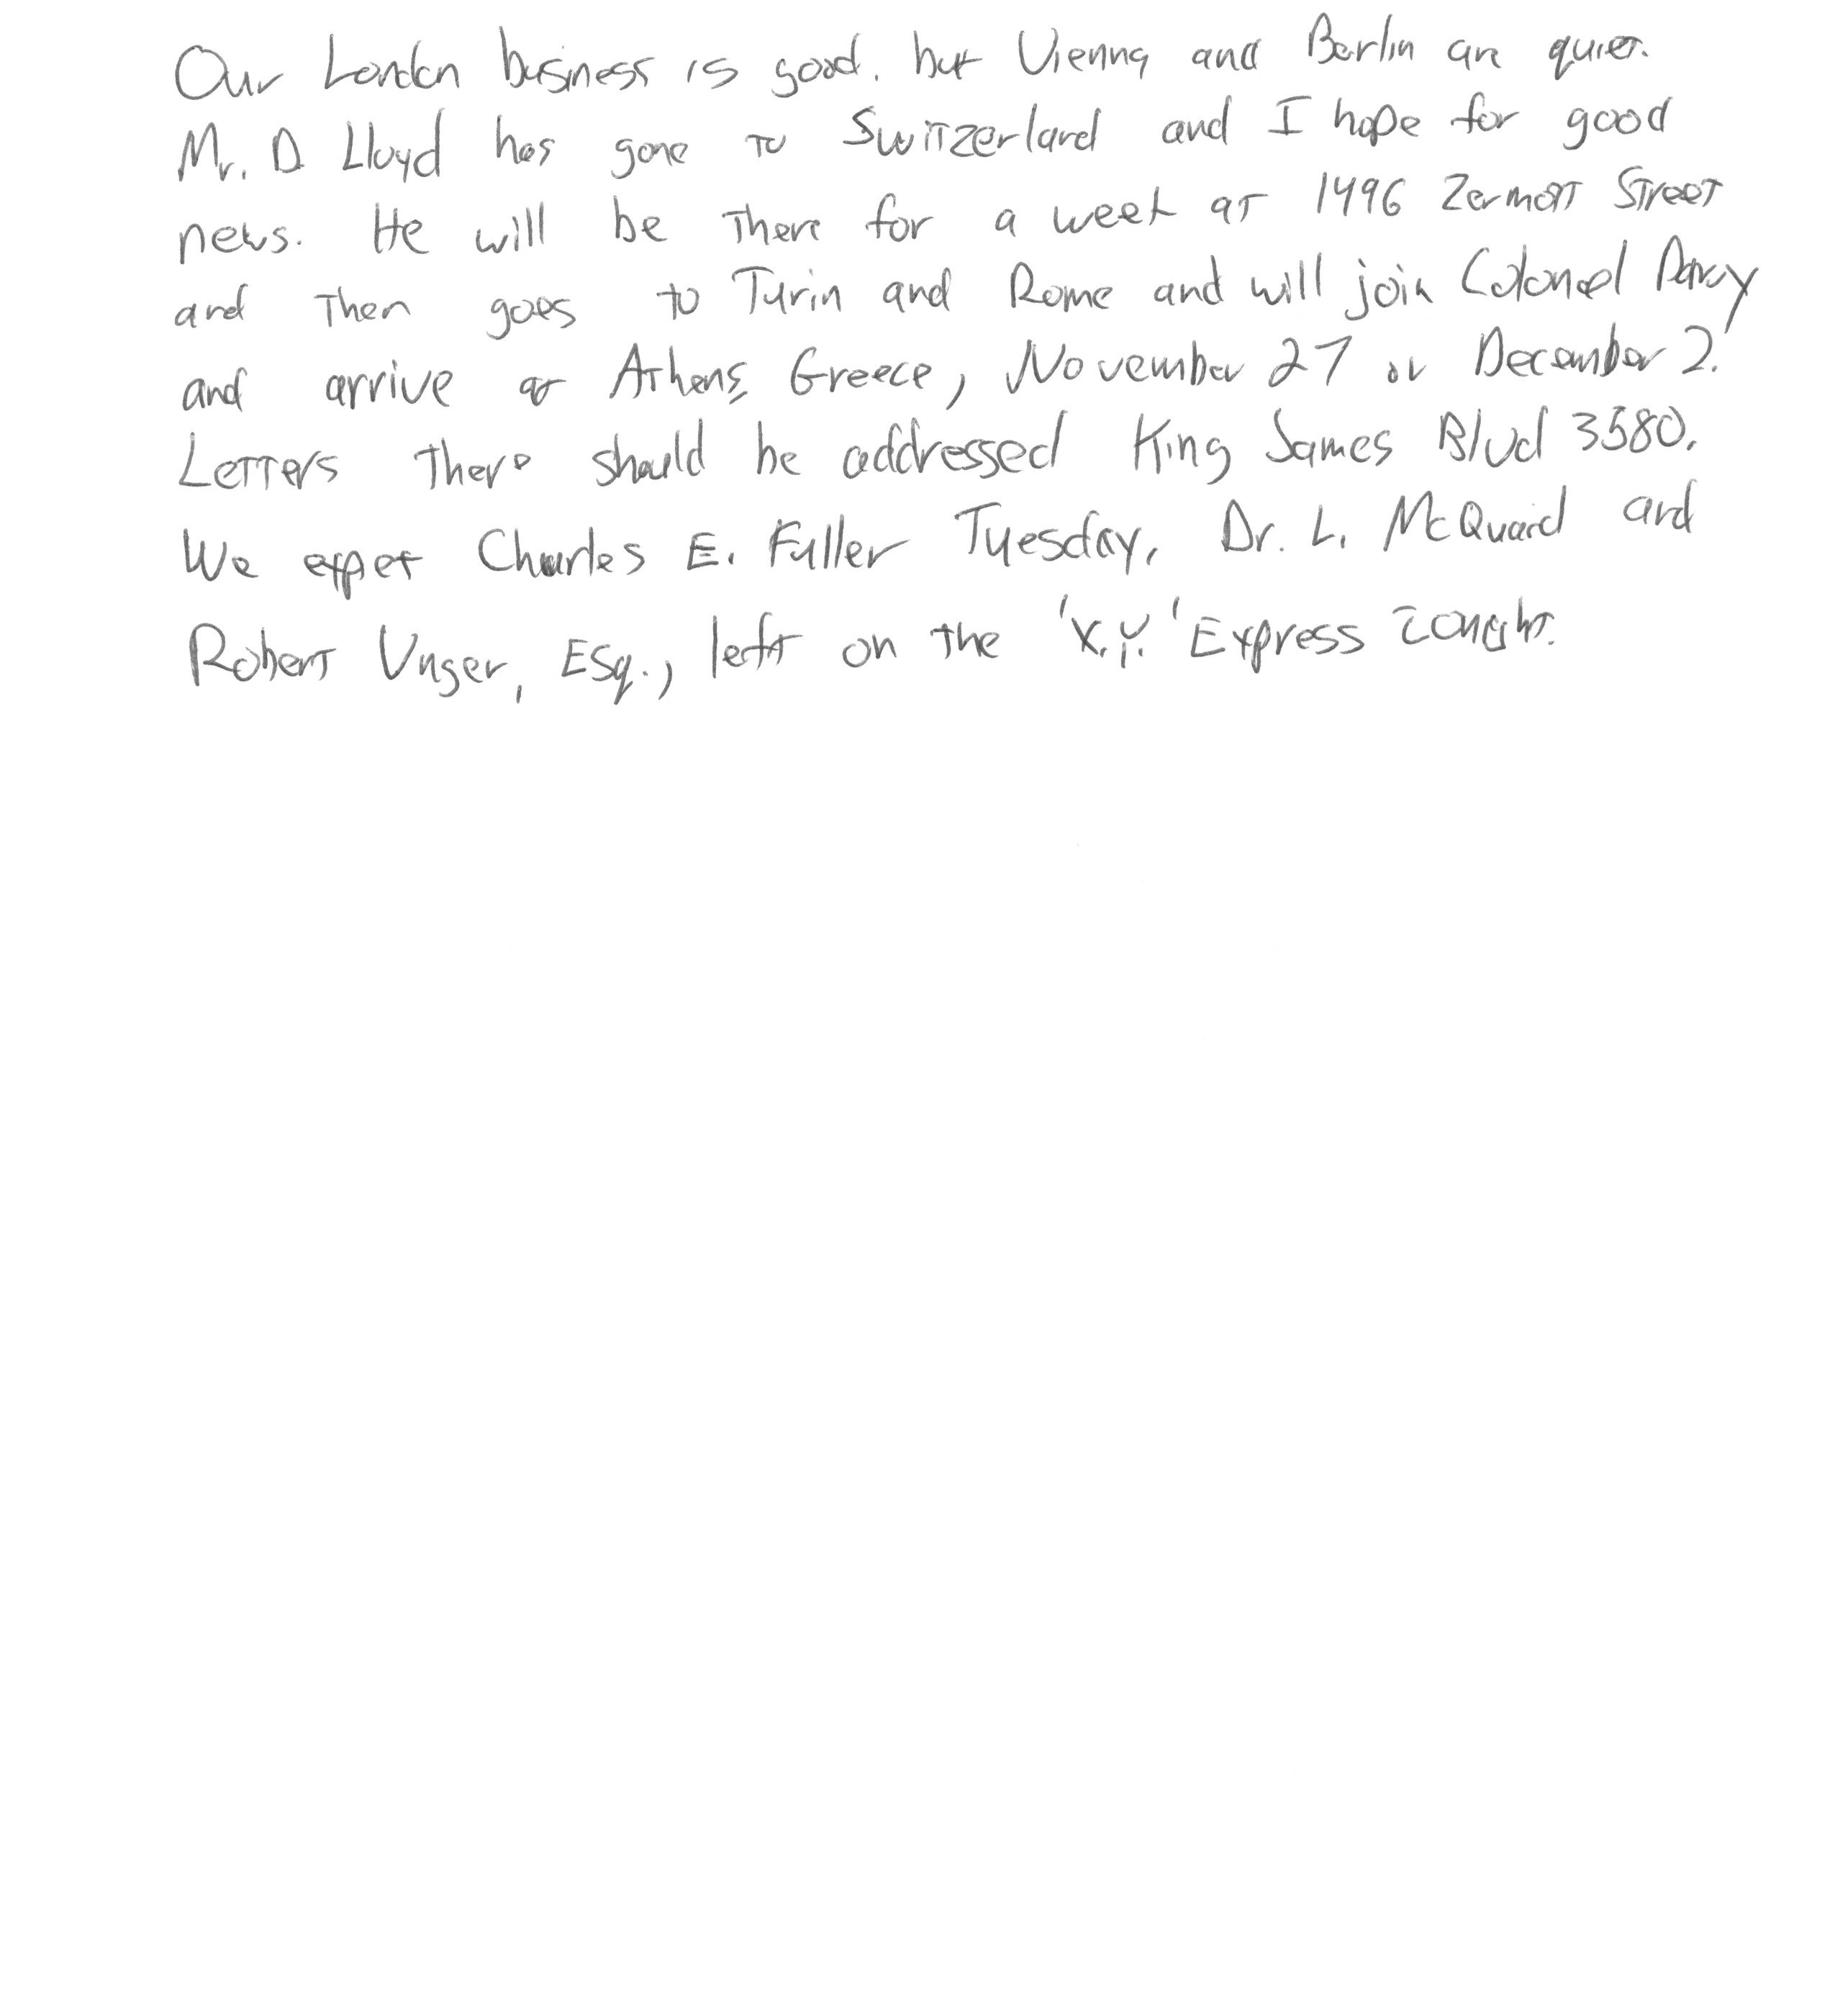 Our London business is good, but Vienna and Berlin are quiet.
Mr. D. Lloyd has gone to Switzerland and I hope for good
news. He will be there for a week at 1496 Zermott Street
and then goes to Turin and Rome and will join Colonel Parry
and arrive at Athens, Greece, November 27 or December 2.
Letters there should be addressed King James Blvd 3580.
We expet Charles E. Fuller Tuesday. Dr. L. McQuaid and
Robert Unger, Esq., left on the 'X.Y.' Express tonight.